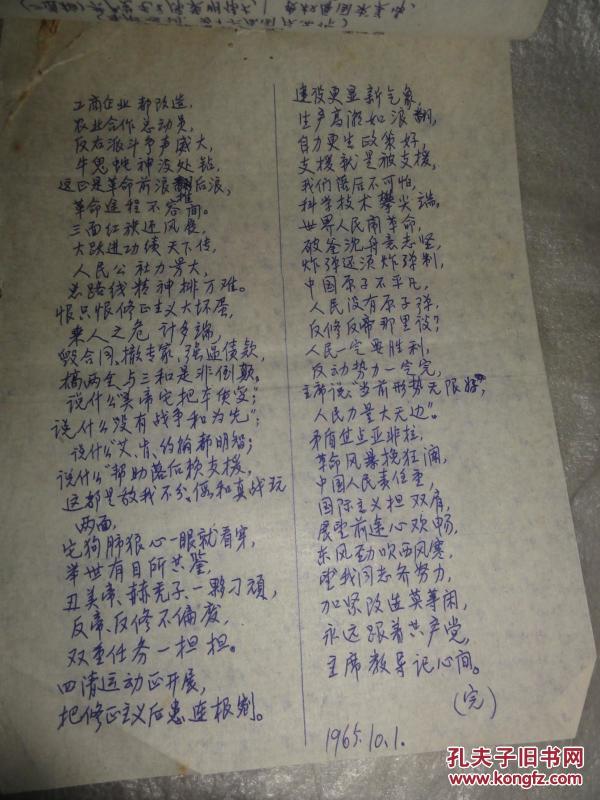 工商企业都改造，
农业合作总动员，
反右派斗争声威大，
牛鬼蛇神没处钻，
这正是革命前浪推后浪，
革命进程不容间。
三面红旗迎风展，
大跃进功绩天下传，
人民公社力量大，
总路线精神排万难。
恨只恨修正主义大坏蛋，
乘人之危计多端，
毁合同、撤专家、强逼债款，
搞两全与三和是非倒颠。
说什么"美帝它把车傍"；
说什么"没有战争和为先"；
说什么"艾、肯、约翰都明智；
说什么"帮助落后换支援，
这都是敌我不分，假和真战玩
两面，
它狗肺狼心一眼就看穿，
举世有目所共鉴，
丑美帝、赫秃子、一夥刁顽，
反帝、反修不偏废，
双重任务一担担。
四清运动正开展，
把修正主义后患连根剜。
建设更显新气象，
生产高潮如浪翻，
自力更生政策好，
支援就是被支援，
我们落后不可怕，
科学技术攀尖端。
世界人民闹革命，
破釜沉舟意志坚，
炸弹还须炸弹制，
中国原子不平凡，
人民没有原子弹，
反修反帝那里谈？
人民一定要胜利，
反动势力一定完，
主席说："当前形势无限好，
人民力量大无边"。
矛盾焦点亚非拉，
革命风暴挽狂澜，
中国人民责任重，
国际主义担双肩，
展望前途心欢畅，
东风劲吹西风寒，
望我同志齐努力，
加紧改造莫等闲，
永远跟着共产党，
主席教导记心间。
（完）
1965.10.1.
孔夫子旧书网
www.kongfz.com